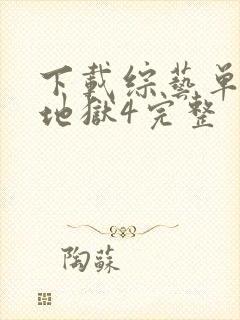 下載綜藝单
地獄4完整
陶蘇